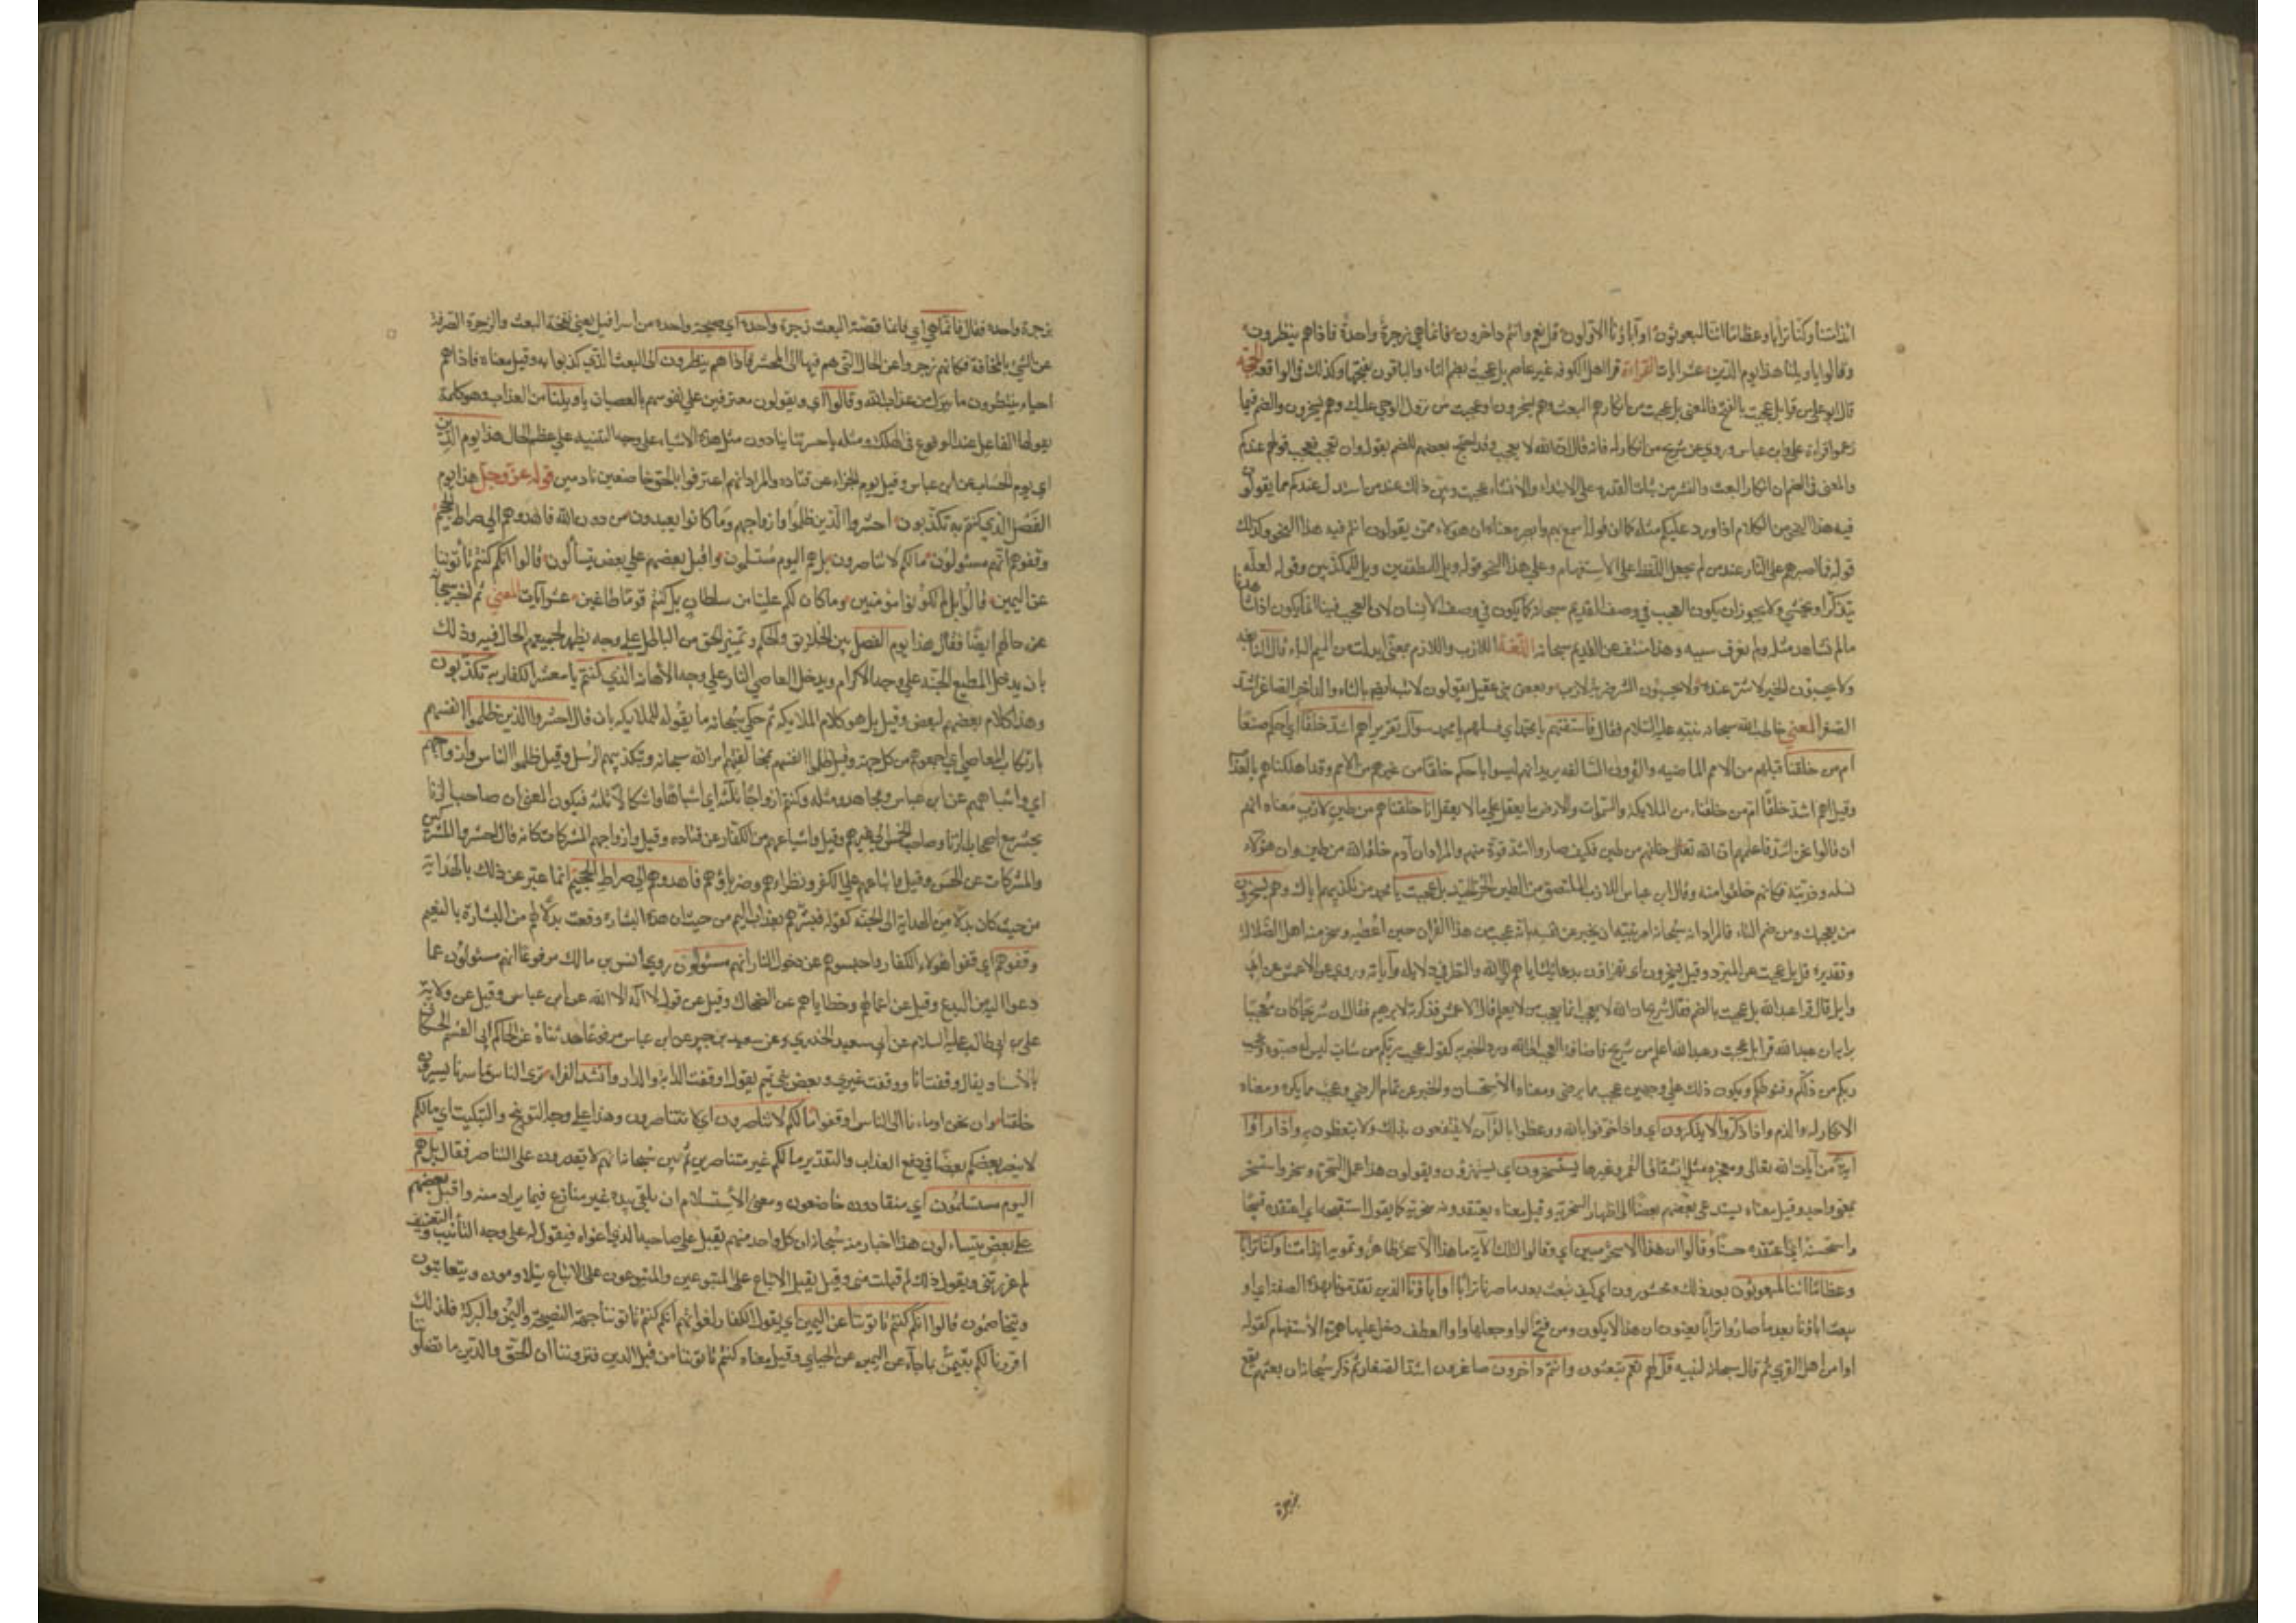 ائذا متنا وكنا ترابا وعظاما ائنا لمبعوثون اوآباؤنا الاولون قل نعم وانتم داخرون فانما هي زجرة واحدة فاذاهم ينظرون
وقالوا ياويلنا هذا يوم الدين عشر ايات القراءة قرا اهل الكوفه غير عاصم بل عجبت بضم التاء والباقون بفتحها وكذلك في الواقعة الحجة
قال ابو علي من قرا بل عجبت بالفتح فالمعنى بل عجبت من انكارهم البعث وهم يسخرون او عجبت من نزول الوحي عليك وهم يسخرون والضم فيما
زعموا قراءة علي وابن عباس وروي عن شريح من انكار له فانه قال ان الله لا يعجب وقد احتج بعضهم للضم بقوله وان تعجب فعجب قولهم عندكم
والمعنى في الضم ان انكار البعث والنشر من ثبات القدرة على الابتداء والانشاء عجيب ويبين ذلك عند من استدل عندكم مما يقولون
فيه هذا النحو من الكلام اذا ورد عليكم مثله كما ان قوله اسمع بهم وابصر معناه ان هؤلاء ممن يقولون انتم فيه هذا النحو وكذلك
قوله فما اصبرهم على النار عند من لم يجعل اللفظ على الاستفهام وعلى هذا النحو قوله ويل للمطففين وويل للمكذبين وقوله لعله
يتذكر او يخشى ولا يجوز ان يكون العجب في وصف القديم سبحانه كما يكون في وصف الانسان لان العجب فينا انما يكون اذا شاهدنا
مالم نشاهد مثله ولم نعرف سببه وهذا منتف عن القديم سبحانه اللغة اللازب واللازم بمعنى ابدلت من الميم الباء قال النابغه
ولا يحسبون الخير لا شر عنده ولا يحسبون الشر ضربة لازب وبعض بني عقيل يقولون لاتب ايضا بالتاء والداخر الصاغر اشد
الصغر المعنى خاطب الله سبحانه نبيه عليه السلام فقال فاستفتهم يا محمد اي فسلهم يا محمد سؤال تقرير اهم اشد خلقا اي احكم صنعا
ام من خلقنا قبلهم من الامم الماضيه والقرون السالفه يريد انهم ليسوا باحكم خلقا من غيرهم من الامم وقد اهلكناهم بالعذاب
وقيل اهم اشد خلقا ام من خلقناه من الملايكة والسموات والارض ما يعقل على ما لا يعقل انا خلقناهم من طين لازب معناه انهم
ان قالوا نحن اشد فاعلمهم ان الله تعالى خلقهم من طين فكيف صاروا اشد قوة منهم والمراد ان آدم خلقه الله من طين وان هؤلاء
نسله وذريته فكانهم خلقوا منه وقال ابن عباس اللازب الملتصق من الطين الحر الجيد بل عجبت يا محمد من تكذيبهم اياك وهم يسخرون
من تعجبك ومن ضم التاء فالمراد انه سبحانه امر نبيه ان يخبر عن نفسه بانه عجب من هذا القران حين اعطيه وسخر منه اهل الضلال
وتقديره قل بل عجبت عن المبرد وقيل يسخرون اي يهزاون بدعائك اياهم الى الله والنظر في دلايله وآياته وروي عن الاعمش عن ابي
وايل قال قرا عبد الله بل عجبت بالضم فقال شريح ان الله لا يعجب انما يعجب من لا يعلم قال الاعمش فذكرته لابرهيم فقال ان شريحا كان معجبا
برايه ان عبد الله قرا بل عجبت وعبد الله اعلم من شريح فاضافة العجب الى الله ورد الخبر به كقوله عجب ربكم من شاب ليس له صبوة وعجب
ربكم من ذلكم وقنوطكم ويكون ذلك على وجهين عجب مما يرضى ومعناه الاستحسان والخبر عن تمام الرضى وعجب مما يكره ومعناه
الانكار له والذم واذا ذكروا لا يذكرون اي واذا خوفوا بالله ووعظوا بالقرآن لا ينتفعون بذلك ولا يتعظون به واذا راوا
آية من آيات الله تعالى ومعجزه مثل انشقاق القمر وغيرها يستسخرون اي يستهزؤن ويقولون هذا عمل السحرة وسخر واستسخر
بمعنى واحد وقيل معناه يستدعي بعضهم بعضا الى اظهار السخرية وقيل معناه يعتقدونه سخرية كما يقول استقبحه اي اعتقده قبيحا
واستحسنه اي اعتقده حسنا وقالوا ان هذا الا سحر مبين اي وقالوا لتلك الآية ما هذا الا سحر ظاهر وتمويه ائذا متنا وكنا ترابا
وعظاما ائنا لمبعوثون بعد ذلك ومحشورون اي كيف نبعث بعد ما صرنا ترابا او اباؤنا الذين تقدمونا بهذه الصفة اي او
يبعث اباؤنا بعد ما صاروا ترابا يعنون ان هذا لا يكون ومن فتح الواو جعلها واو العطف دخل عليها همزة الاستفهام كقوله
اوامن اهل القرى ثم قال سبحانه لنبيه قل لهم نعم تبعثون وانتم داخرون صاغرون اشد الصغار ثم ذكر سبحانه ان بعثهم يقع
بزجرة
بزجرة واحده فقال فانما هي اي فانما قصة البعث زجرة واحدة اي صيحة واحده من اسرافيل يعني نفخة البعث والزجرة الصرفة
عن الشيء بالمخافة فكانهم زجروا عن الحال التي هم فيها الى المحشر فاذا هم ينظرون الى البعث الذي كذبوا به وقيل معناه فاذا هم
احياء ينتظرون ما ينزل بهم من عذاب الله وقالوا اي ويقولون معترفين على نفوسهم بالعصيان يا ويلنا من العذاب وهو كلمة
يقولها القايل عند الوقوع في الهلكة ومثله يا حسرتنا ينادون مثل هذه الاشياء على وجه التنبيه على عظم الحال هذا يوم الدين
اي يوم الحساب عن ابن عباس وقيل يوم الجزاء عن قتاده والمراد انهم اعترفوا بالحق خاضعين نادمين قوله عز وجل هذا يوم
الفصل الذي كنتم به تكذبون احشروا الذين ظلموا وازواجهم وما كانوا يعبدون من دون الله فاهدوهم الى صراط الجحيم
وقفوهم انهم مسئولون مالكم لا تناصرون بل هم اليوم مستسلمون واقبل بعضهم على بعض يتسألون قالوا انكم كنتم تأتوننا
عن اليمين قالوا بل لم تكونوا مؤمنين وما كان لكم علينا من سلطان بل كنتم قوما طاغين عشر آيات المعنى ثم اخبر سبحانه
عن حالهم ايضا فقال هذا يوم الفصل بين الخلايق والحكم وتمييز الحق من الباطل على وجه يظهر لجميعهم الحال فيه وذلك
بان يدخل المطيع الجنة على وجه الاكرام ويدخل العاصي النار على وجه الاهانة الذي كنتم يا معشر الكفار به تكذبون
وهذا كلام بعضهم لبعض وقيل بل هو كلام الملايكه ثم حكى سبحانه ما يقوله للملايكه بان قال احشروا الذين ظلموا انفسهم
بارتكاب المعاصي اي اجمعوهم من كل جهة وقيل ظلموا انفسهم بمخالفتهم امر الله سبحانه وبتكذيبهم الرسل وقيل ظلموا الناس وازواجهم
اي واشباههم عن ابن عباس ومجاهد ومثله وكنتم ازواجا ثلثة اي اشباها واشكالا ثلثة فيكون المعنى ان صاحب الزنا
يحشر مع اصحاب الزنا وصاحب الخمر الى غيرهم وقيل واشياعهم من الكفار عن قتاده وقيل وازواجهم المشركات كانه قال احشروا المشركين
والمشركات عن الحسن وقيل واتباعهم على الكفر ونظراءهم وضرباؤهم فاهدوهم الى صراط الجحيم انما عبر عن ذلك بالهداية
من حيث كان بدلا من الهداية الى الجنة كقوله فبشرهم بعذاب اليم من حيث ان هذه البشارة وقعت بدلا لهم من البشارة بالنعيم
وقفوهم اي قفوا هؤلاء الكفار واحبسوهم عن دخول النار انهم مسئولون روي أنس بن مالك مرفوعا انهم مسئولون عما
دعوا اليه من البدع وقيل عن اعمالهم وخطاياهم عن الضحاك وقيل عن قول لا اله الا الله عن ابن عباس وقيل عن ولاية
علي بن ابي طالب عليه السلام عن ابي سعيد الخدري وعن سعيد بن جبير عن ابن عباس مرفوعا حدثناه عن الحاكم ابي القسم الحسكاني
بالأسناد يقال وقفت انا ووقفت غيري وبعض بني تميم يقول اوقفت الدابة والدار وأنشد الفراء ترى الناس ما سرنا يسيرون
خلفنا وان نحن اومأنا الى الناس اوقفوا مالكم لا تناصرون اي لا تتناصرون وهذا على وجه التوبيخ والتبكيت اي مالكم
لا ينصر بعضكم بعضا في دفع العذاب والتقدير ما لكم غير متناصرين ثم بين سبحانه انهم لا يقدرون على التناصر فقال بل هم
اليوم مستسلمون اي منقادون خاضعون ومعنى الأستسلام ان يلقي بيده غير منازع فيما يراد منه واقبل بعضهم
على بعض يتساءلون هذا اخبار منه سبحانه ان كل واحد منهم يقبل على صاحبه الذي اغواه فيقول له على وجه التأنيب والتعنيف
لم غررتني ويقول ذلك لم قبلت مني وقيل يقبل الاتباع على المتبوعين والمتبوعون على الاتباع يتلاومون ويتعاتبون
ويتخاصمون قالوا انكم كنتم تاتوننا عن اليمين اي يقول الكفار لغواتهم انكم كنتم تاتوننا من جهة النصيحة واليمن والبركة فلذلك
اقررنا لكم عن اليمين عن الجبائي وقيل معناه كنتم تاتوننا من قبل الدين فتروننا ان الحق والدين ما تضلوننا